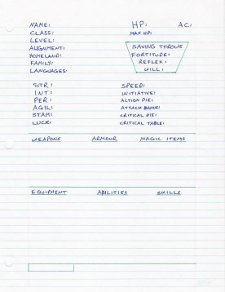 NAME: HP: AC:
CLASS: MAX HP:
LEVEL:
ALIGNMENT: SAVING THROWS
HOMELAND: FORTITUDE:
FAMILY: REFLEX:
LANGUAGES: WILL:
STR: SPEED:
INT: INITIATIVE:
PER: ACTION DIE:
AGIL: ATTACK BONUS:
STAM: CRITICAL DIE:
LUCK: CRITICAL TABLE:
WEAPONS ARMOUR MAGIC ITEMS
EQUIPMENT ABILITIES SKILLS